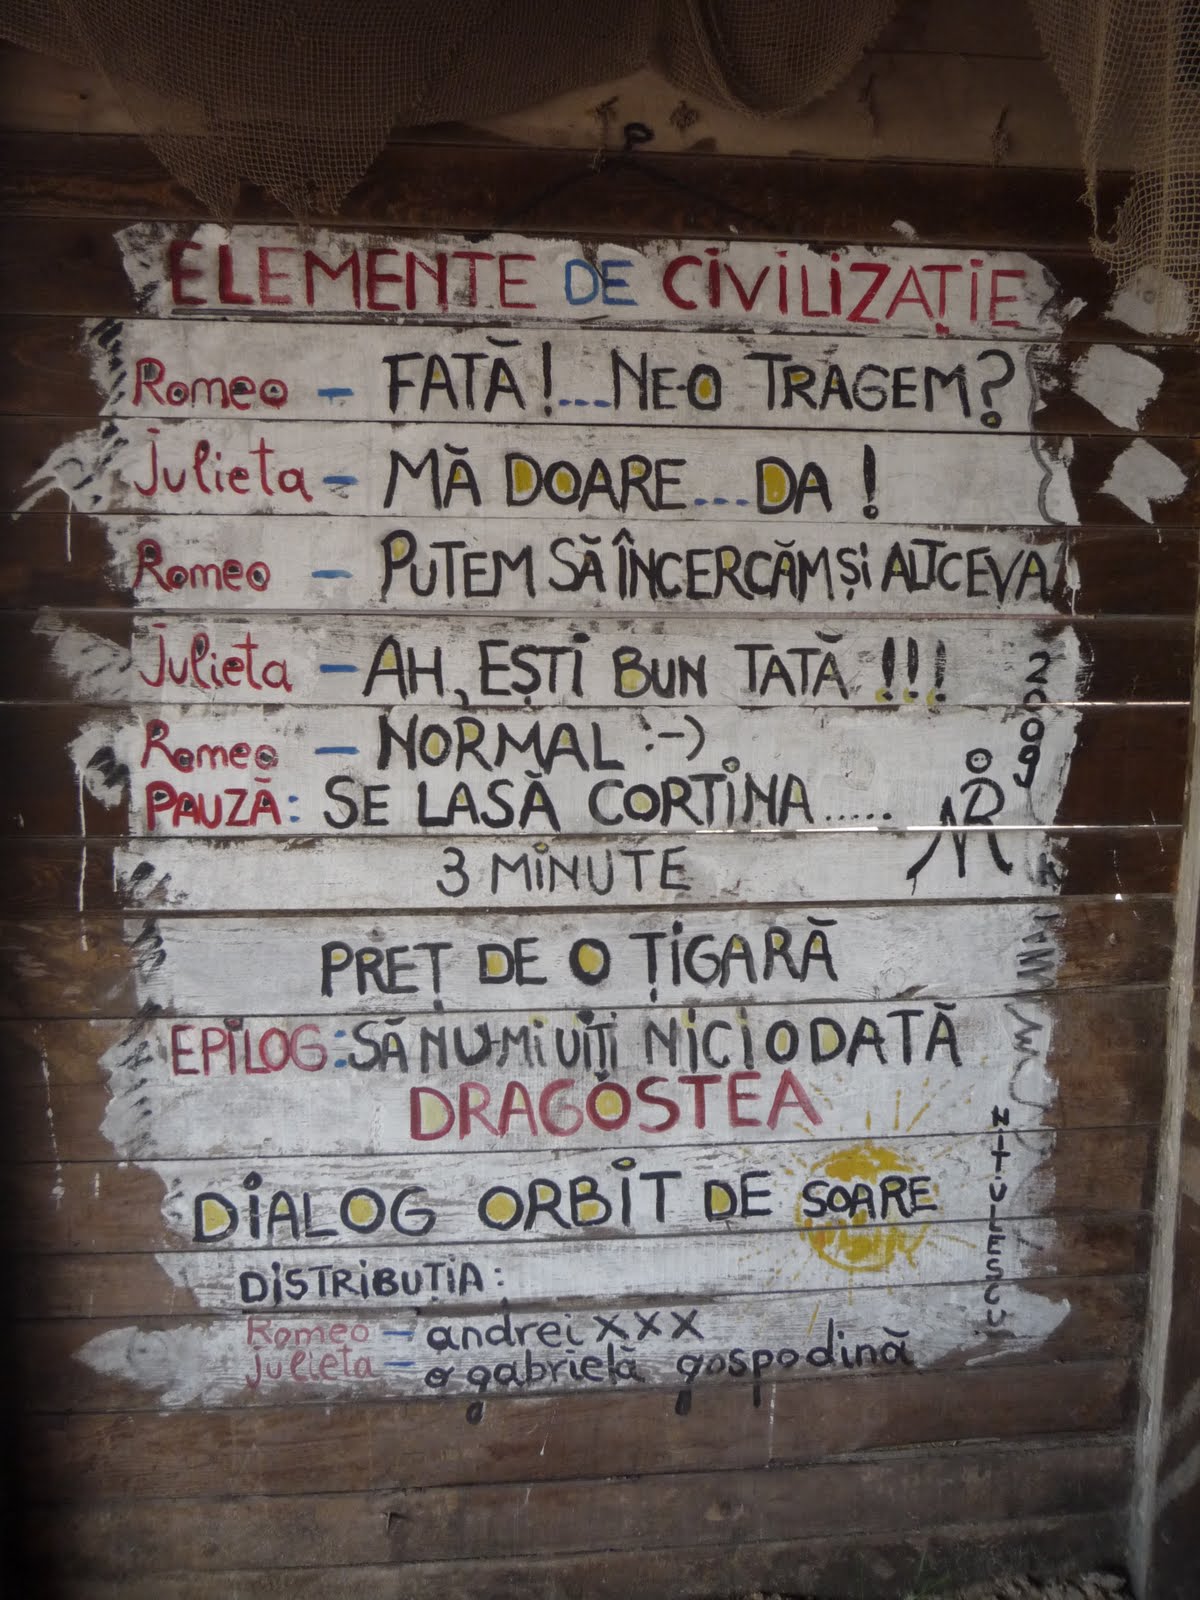 ELEMENTE DE CIVILIZAȚIE
Romeo - FATĂ!...NE-O TRAGEM?
Julieta - MĂ DOARE...DA!
Romeo - PUTEM SĂ ÎNCERCĂM ȘI ALTCEVA
Julieta - AH, EȘTI BUN TATĂ!!!
Romeo - NORMAL :-)
PAUZĂ: SE LASĂ CORTINA.....
3 MINUTE
PREȚ DE O ȚIGARĂ
EPILOG: SĂ NU-MI UIȚI NICIODATĂ
DRAGOSTEA
DIALOG ORBIT DE SOARE
DISTRIBUȚIA:
Romeo - andrei XXX
Julieta - o gabrielă gospodină
2009
NIȚULESCU